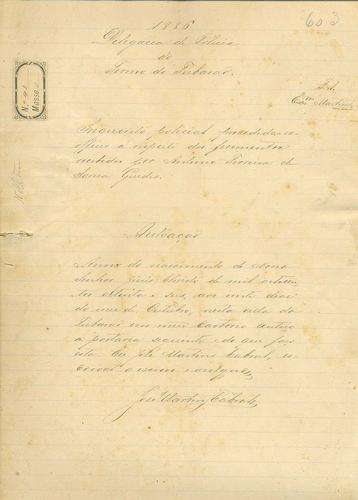 1886
603
Delegacia de Policia
do
Termo do Tubarão
Nº 41
Masso
Inquerito policial procedido ex
officio a respeito dos ferimentos
recebidos por Antonio Pereira de
Souza
Autuação
Anno do nascimento de Nosso
Senhor Jesus Christo de mil oitocen
tos oitenta e seis, aos vinte dias
do mez de Outubro, nesta villa do
Tubarão em meu cartorio autuo
a portaria seguinte e do que faço
este. Eu José Martins Cabral, es
crivão o escrevi e assignei
José Martins Cabral